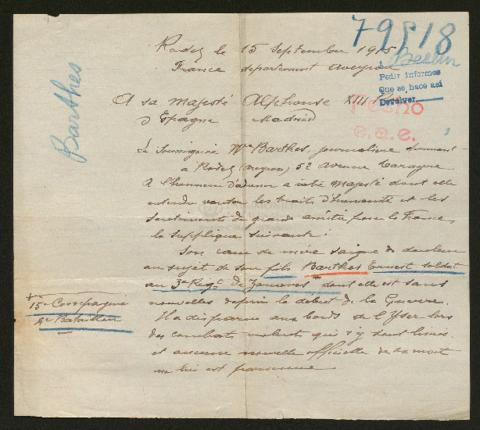 79818
Rodez le 15 septembre 1915
Berlin
France département Aveyron
Pedir informes
Que se hace así
Devolver
A sa majesté Alphonse XIII
d'Espagne Madrid
Hecho
e.a.e.
Barthes
La Soussignée Mme Barthes, journalière demeurant
à Rodez (Aveyron) 52 Avenue Tarayre
A l'honneur d'adresser a votre majesté dont elle
entendu vanter les traits d'humanité et les
sentiments de grande amitié pour la France,
la supplique suivante :
Son cœur de mère saigne de douleur
au sujet de son fils Barthes Ernest soldat
au 3e Régt de Zouaves dont elle est sans
15e Compagnie
4e Bataillon
nouvelles depuis le debut de la Guerre.
Il a disparu aux bords de l'Yser lors
des combats violents qui s'y sont livrés
et aucune nouvelle officielle de sa mort
ne lui est parvenue